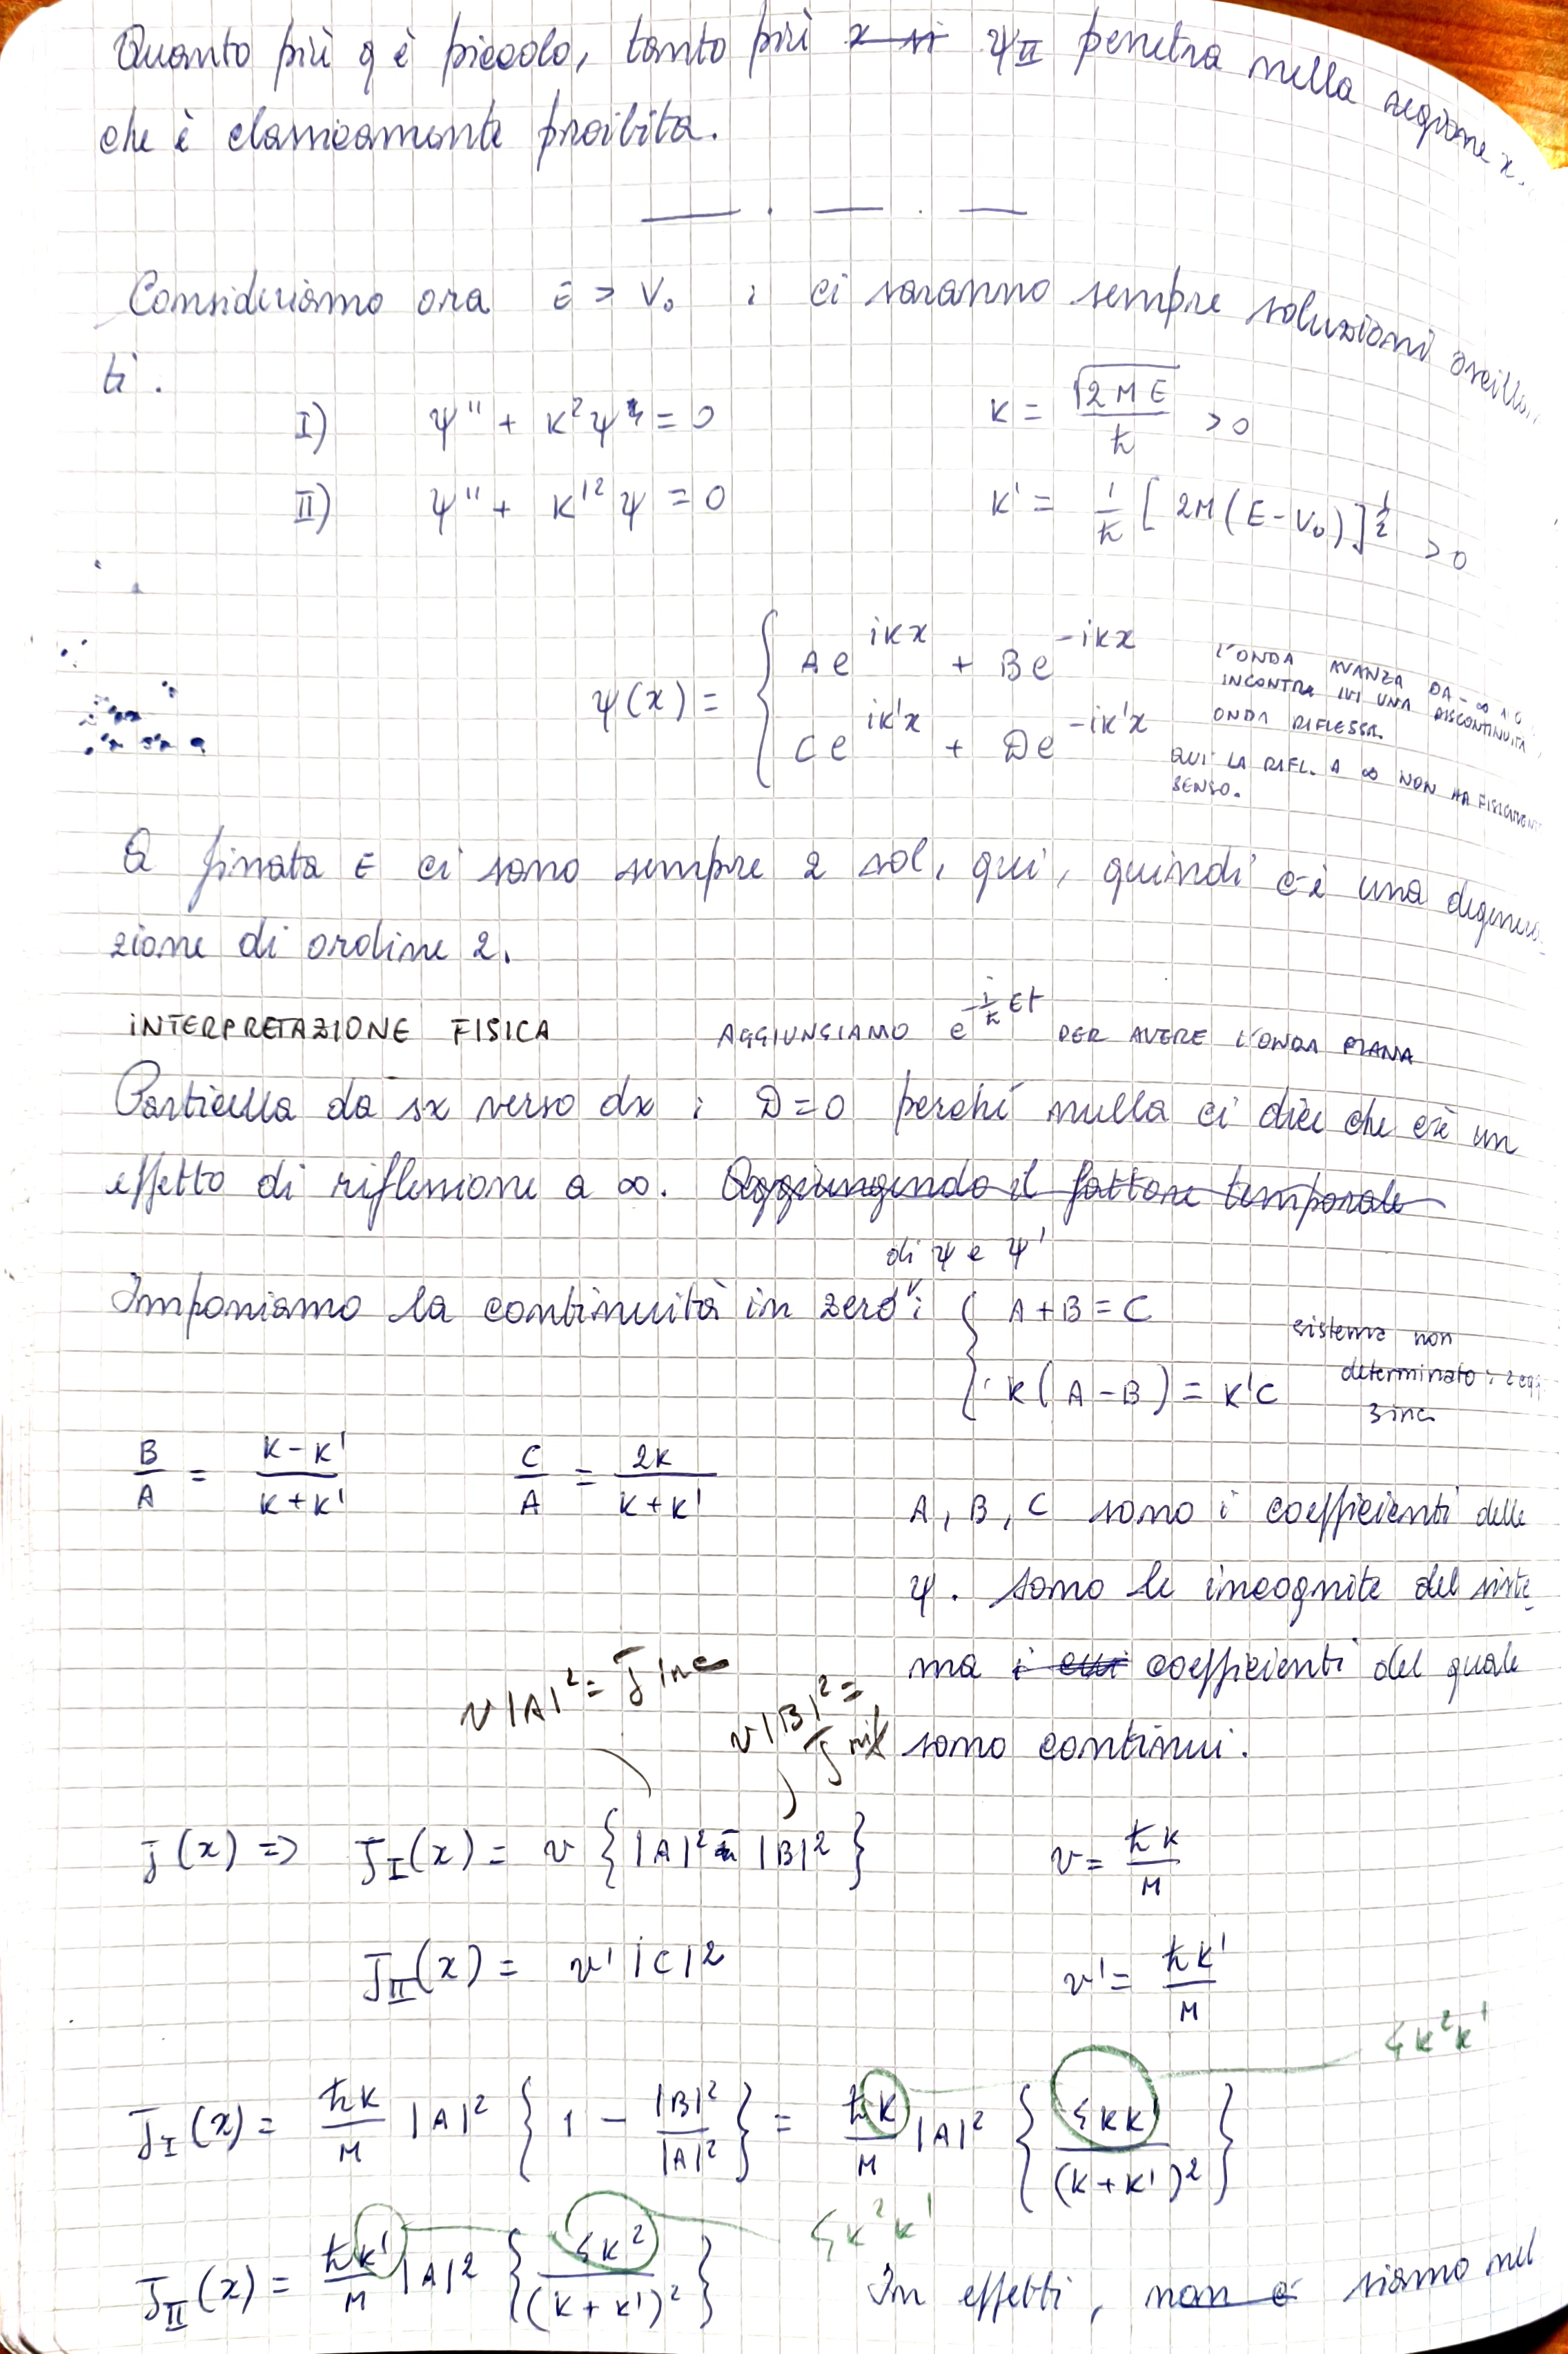 Quanto più q è piccolo, tanto più ψ_II penetra nella regione x
che è classicamente proibita.
Consideriamo ora E > V₀ : ci saranno sempre soluzioni oscillan
ti.
I) ψ'' + K²ψ = 0 K = √(2ME)/ħ > 0
II) ψ'' + K'²ψ = 0 K' = 1/ħ [2M(E-V₀)]^½ > 0
ψ(x) = { A e^{iKx} + B e^{-iKx}
C e^{iK'x} + D e^{-iK'x}
L'ONDA AVANZA DA -∞ A 0
INCONTRA IVI UNA DISCONTINUITÀ
ONDA RIFLESSA.
QUI LA RIFL. A ∞ NON HA FISICAMENTE
SENSO.
A fissata E ci sono sempre 2 sol, qui, quindi c'è una degenera-
zione di ordine 2.
INTERPRETAZIONE FISICA AGGIUNGIAMO e^{-i/ħ Et} PER AVERE L'ONDA PIANA
Particella da sx verso dx : D=0 perché nulla ci dice che c'è un
effetto di riflessione a ∞. Aggiungendo il fattore temporale
di ψ e ψ'
Imponiamo la continuità in zero : { A+B = C
K(A-B) = K'C
sistema non
determinato : 2 eq
3 inc
B/A = (K-K')/(K+K') C/A = 2K/(K+K')
A, B, C sono i coefficienti delle
ψ. Sono le incognite del siste-
ma i cui coefficienti del quale
sono continui.
v|A|² = J inc
v|B|² =
J rif
J(x) => J_I(x) = v {|A|² - |B|²} v = ħK/M
J_II(x) = v'|C|² v' = ħK'/M
4K²K'
J_I(x) = ħK/M |A|² {1 - |B|²/|A|²} = ħK/M |A|² {4KK'/(K+K')²}
4K²K'
J_II(x) = ħK'/M |A|² {4K²/(K+K')²} In effetti, non è siamo nel